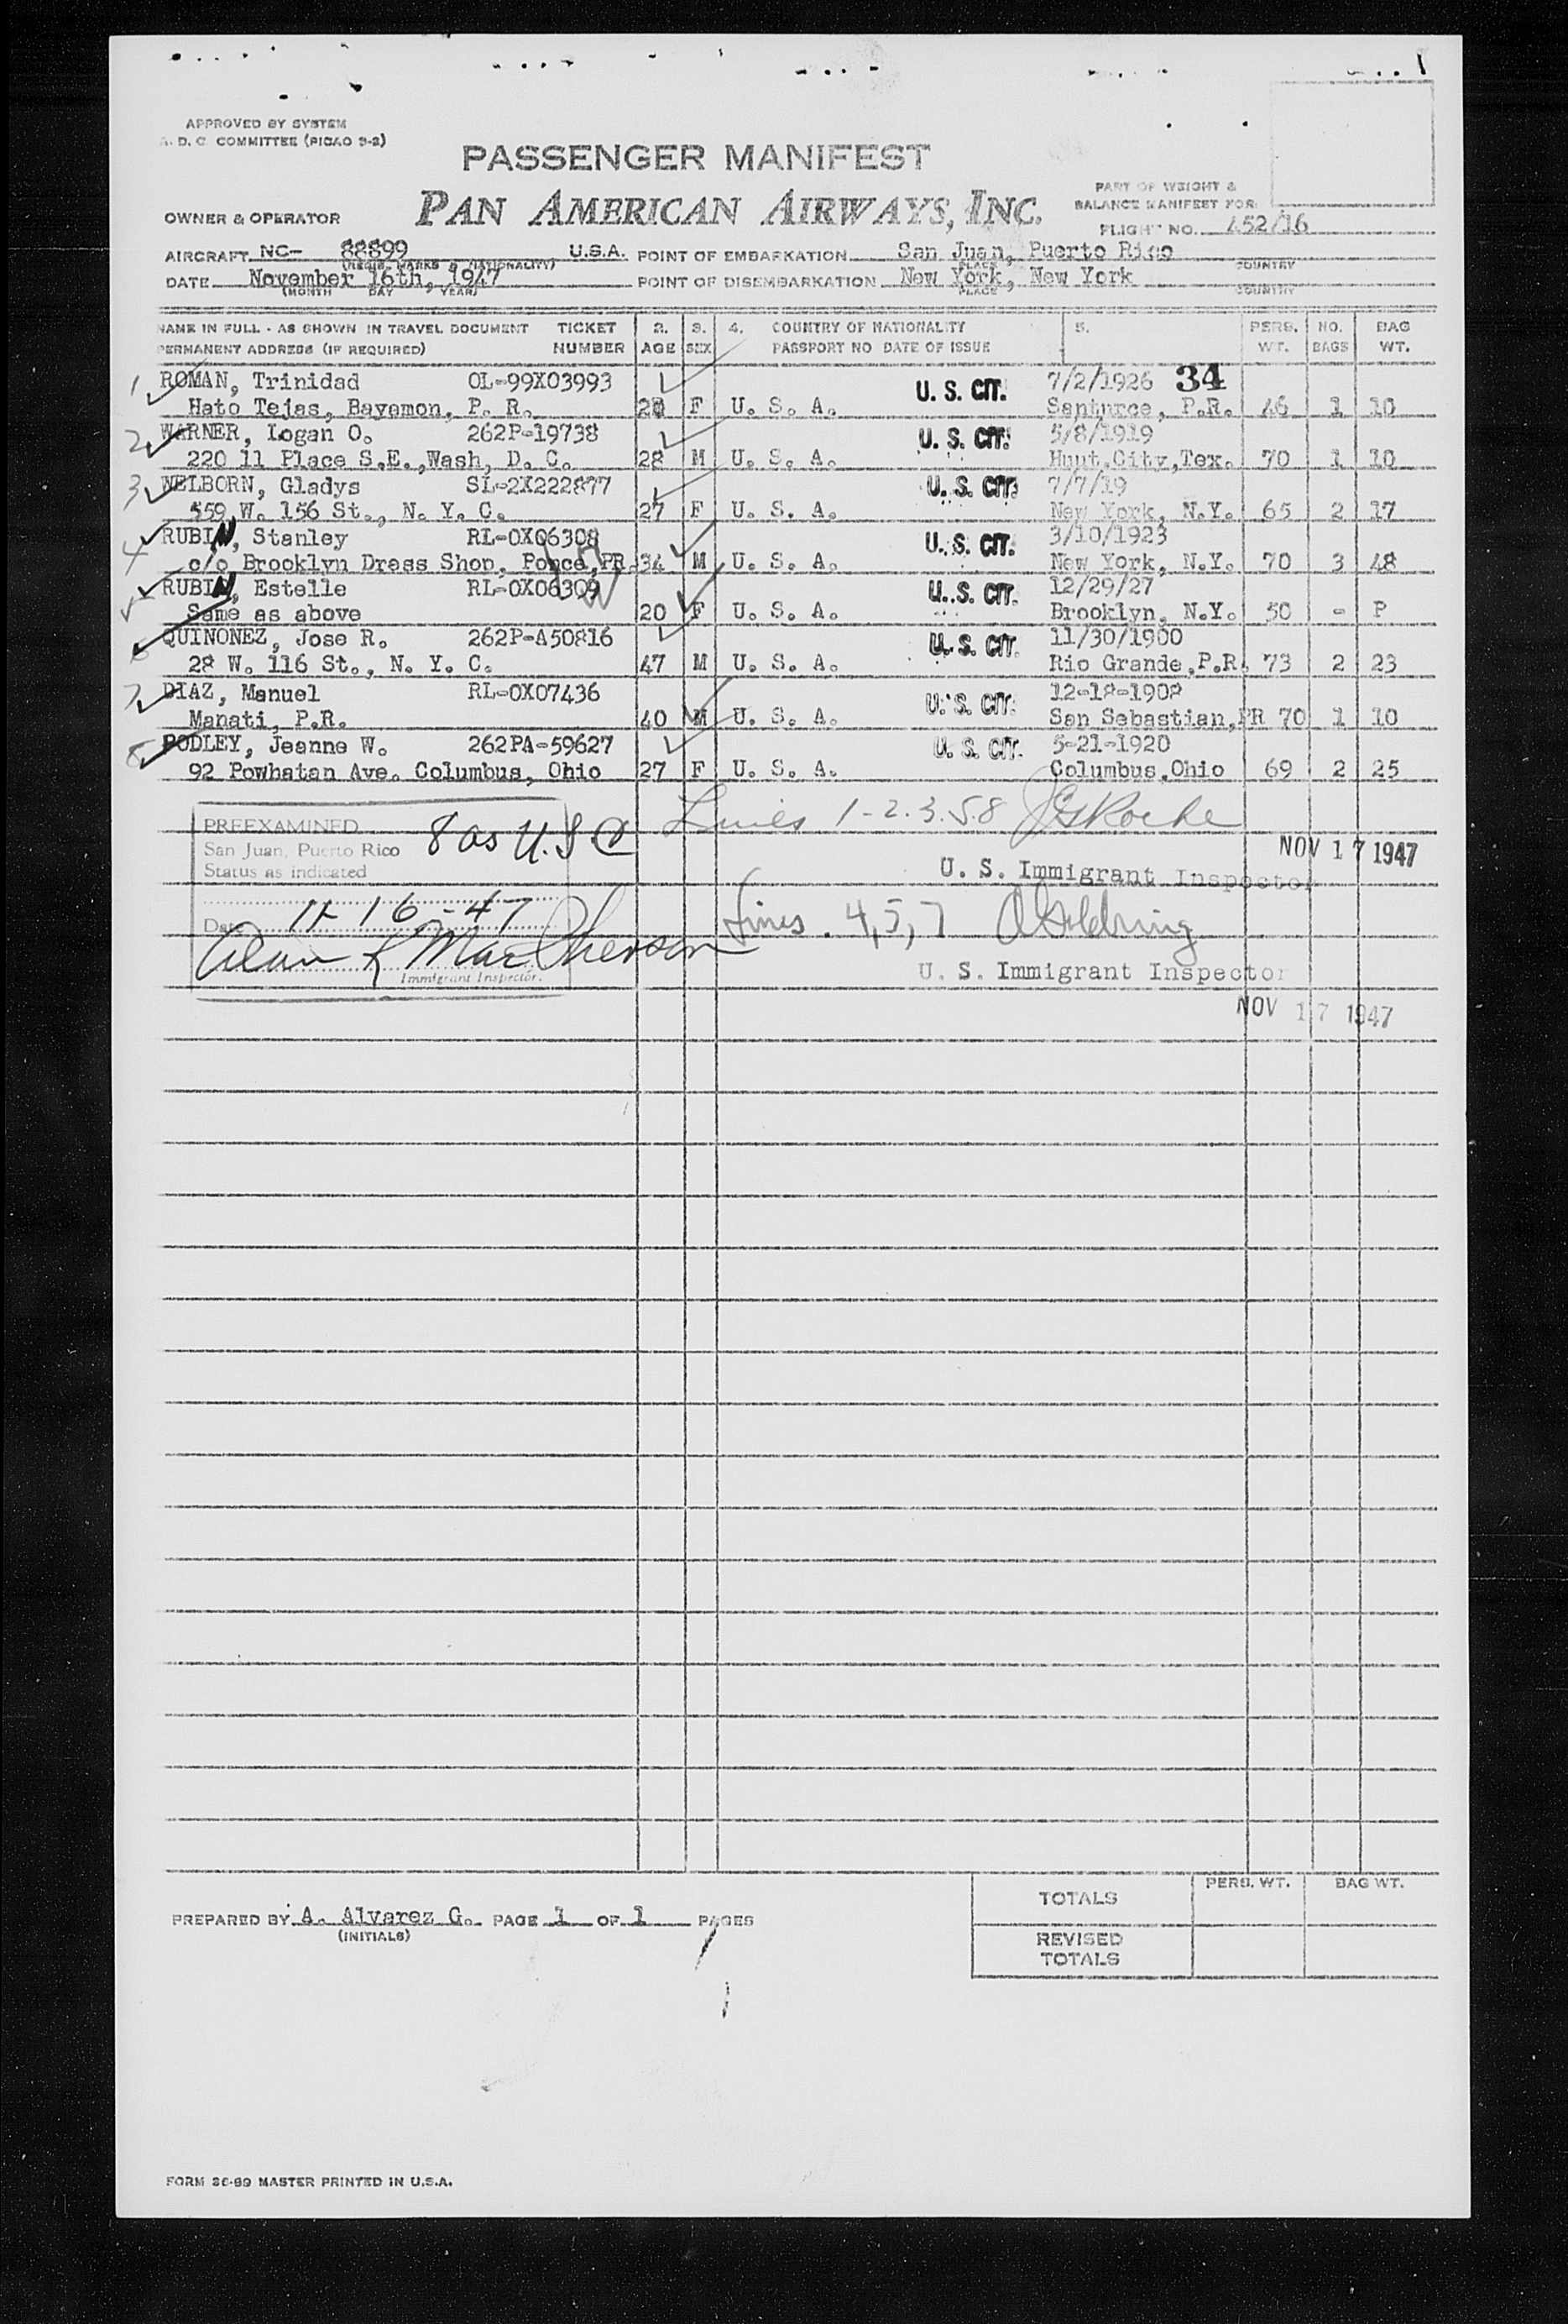 APPROVED BY SYSTEM
A. D. C. COMMITTEE (PICAO 9-2)
PASSENGER MANIFEST
PAN AMERICAN AIRWAYS, INC.
PART OF WEIGHT &
BALANCE MANIFEST FOR
OWNER & OPERATOR
FLIGHT NO. 452/16
AIRCRAFT NC- 88899 U.S.A. POINT OF EMBARKATION San Juan, Puerto Rico
(REGIS. MARKS & NATIONALITY) PLACE COUNTRY
DATE November 16th, 1947 POINT OF DISEMBARKATION New York, New York
(MONTH DAY YEAR) PLACE COUNTRY
NAME IN FULL - AS SHOWN IN TRAVEL DOCUMENT TICKET 2. 3. 4. COUNTRY OF NATIONALITY 5. PERS. NO. BAG
PERMANENT ADDRESS (IF REQUIRED) NUMBER AGE SEX PASSPORT NO DATE OF ISSUE WT. BAGS WT.
1 ROMAN, Trinidad OL-99X03993 U. S. CIT. 7/2/1926 34
Hato Tejas, Bayamon, P. R. F U. S. A. Santurce, P.R. 46 1 10
2 WARNER, Logan O. 262P-19738 U. S. CIT. 5/8/1919
220 11 Place S.E.,Wash, D. C. 28 M U. S. A. Hunt.City,Tex. 70 1 10
3 WELBORN, Gladys SL-2X222877 U. S. CIT. 7/7/19
559 W. 156 St., N. Y. C. 27 F U. S. A. New York, N.Y. 65 2 17
4 RUBIN, Stanley RL-0X06308 U. S. CIT. 3/10/1923
c/o Brooklyn Dress Shop, Ponce,PR 34 M U. S. A. New York, N.Y. 70 3 48
5 RUBIN, Estelle RL-0X06309 U. S. CIT. 12/29/27
Same as above 20 F U. S. A. Brooklyn, N.Y. 50 - P
6 QUINONEZ, Jose R. 262P-A50816 U. S. CIT. 11/30/1900
28 W. 116 St., N. Y. C. 47 M U. S. A. Rio Grande,P.R. 73 2 23
7 DIAZ, Manuel RL-0X07436 U. S. CIT. 12-18-1908
Manati, P.R. 40 M U. S. A. San Sebastian,PR 70 1 10
8 PODLEY, Jeanne W. 262PA-59627 U. S. CIT. 5-21-1920
92 Powhatan Ave. Columbus, Ohio 27 F U. S. A. Columbus,Ohio 69 2 25
PREEXAMINED 8 as U.S C Lines 1-2.3.5.8 JG Roche
San Juan, Puerto Rico NOV 17 1947
Status as indicated U. S. Immigrant Inspector
Date 11-16-47 Lines. 4,5,7
Alan K MacPherson
Immigrant Inspector. U. S. Immigrant Inspector
NOV 17 1947
PERS. WT. BAG WT.
TOTALS
PREPARED BY A. Alvarez G. PAGE 1 OF 1 PAGES
(INITIALS)
REVISED
TOTALS
FORM 36-99 MASTER PRINTED IN U.S.A.